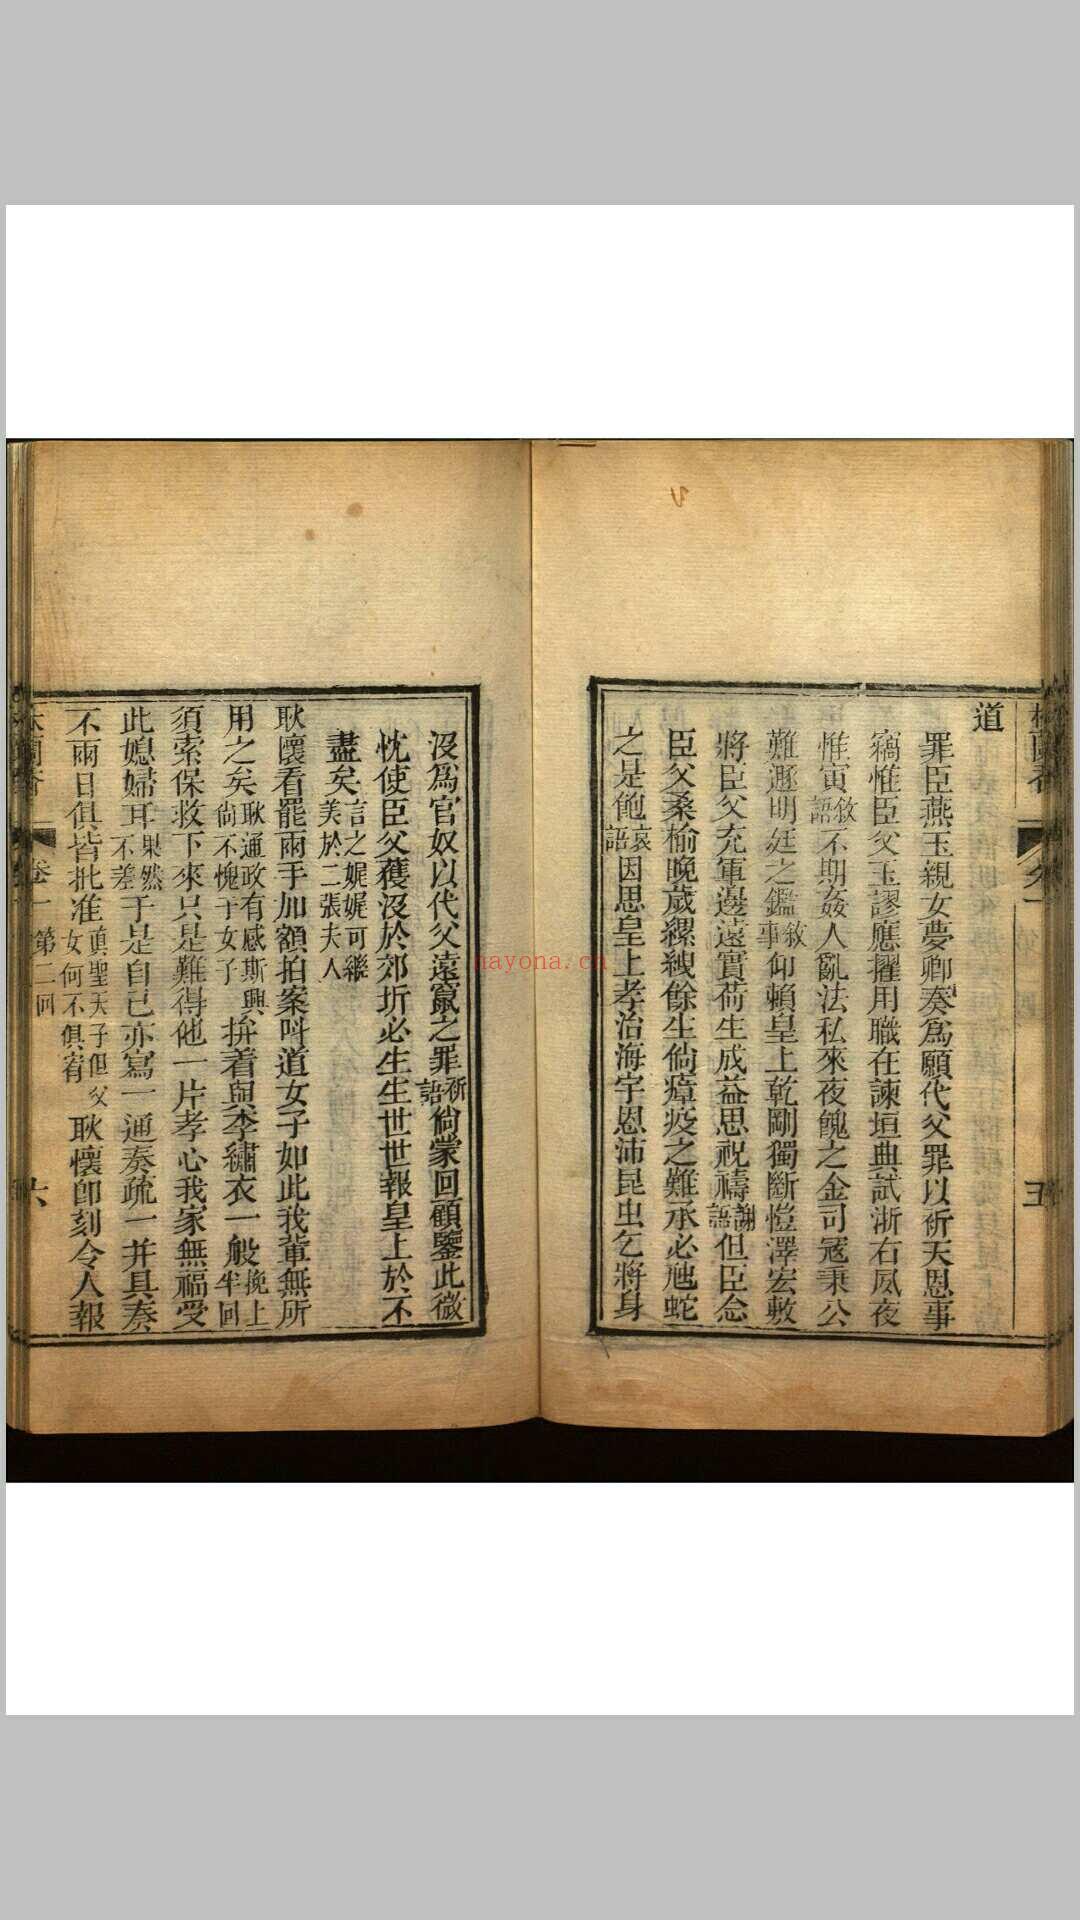 道
罪臣燕玉親女夢卿奏爲願代父罪以祈天恩事
竊惟臣父玉謬應擢用職在諫垣典試浙右夙夜
惟寅敘語不期姦人亂法私來夜餽之金司寇秉公
難遯明廷之鑑敘事仰賴皇上乾剛獨斷愷澤宏敷
將臣父充軍邊遠實荷生成益思祝禱謝語但臣念
臣父桑榆晚歲縲絏餘生倘瘴疫之難承必虺蛇
之是飽哀語因思皇上孝治海宇恩沛昆虫乞將身
沒爲官奴以代父遠竄之罪祈語倘蒙回顧鑒此微
忱使臣父獲沒於郊圻必生生世世報皇上於不
盡矣言之娓娓可繼美於二張夫人
耿懷看罷兩手加額拍案呌道女子如此我輩無所
用之矣耿通政有感斯興倘不愧于女子拚着與李繡衣一般挽上半回
須索保救下來只是難得他一片孝心我家無福受
此媳婦耳果然不差于是自己亦寫一通奏疏一并具奏
不兩日俱皆批准眞聖天子但父女何不俱宥耿懷卽刻令人報
卷一 第二回
六
nayona.cn